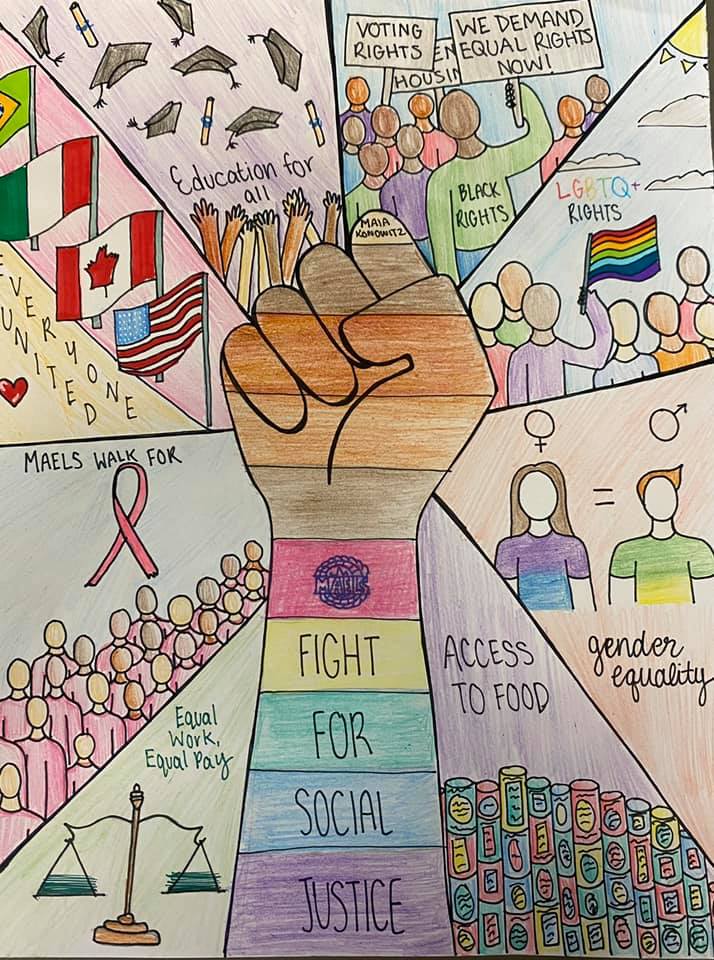 VOTING
RIGHTS
EN
HOUSIN
WE DEMAND
EQUAL RIGHTS
NOW!
Education for
all
BLACK
RIGHTS
MAIA
KONOWITZ
LGBTQ+
RIGHTS
EVERYONE
UNITED
MAELS WALK FOR
MAELS
FIGHT
FOR
SOCIAL
JUSTICE
ACCESS
TO FOOD
gender
equality
Equal
Work,
Equal Pay